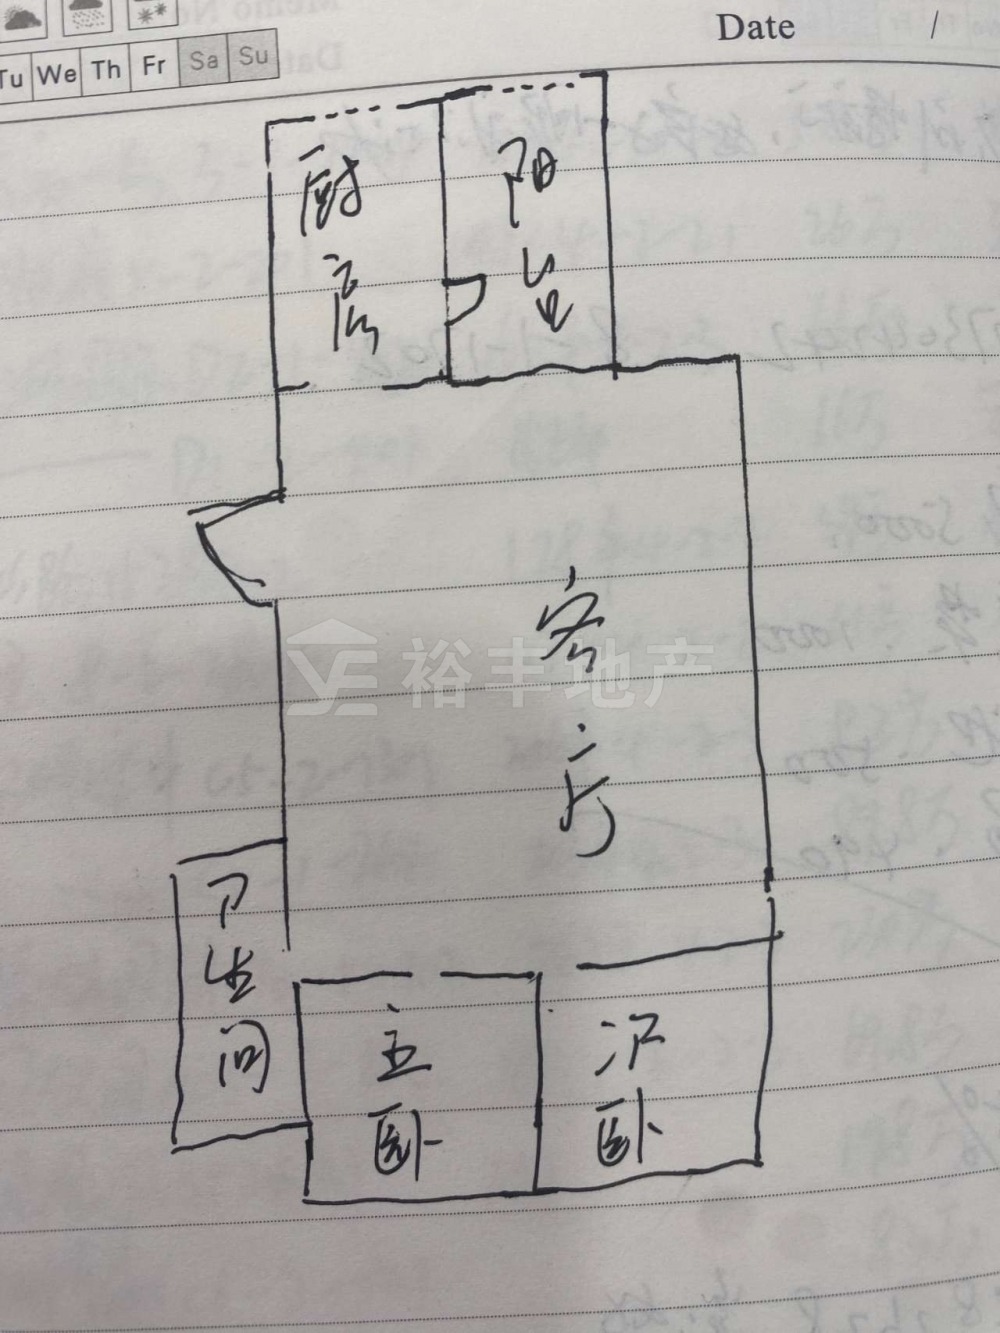 Date /
Tu We Th Fr Sa Su
厨房
阳台
客厅
裕丰地产
卫生间
主卧
次卧